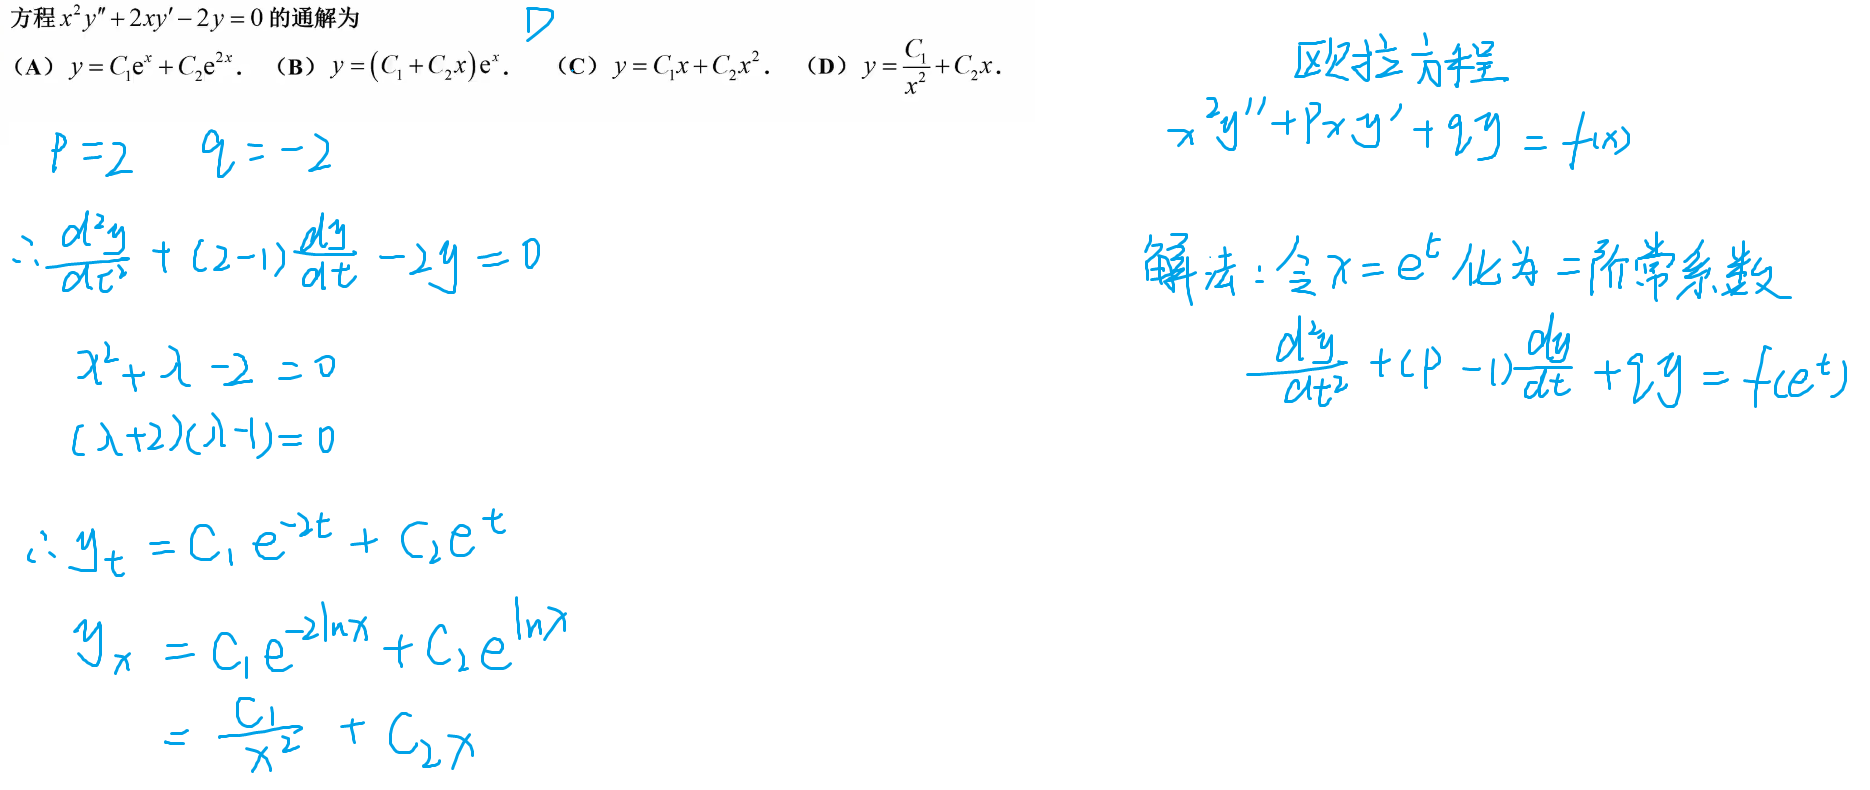 方程 x²y″ + 2xy′ − 2y = 0 的通解为
D
（A） y = C₁eˣ + C₂e²ˣ. （B） y = (C₁ + C₂x)eˣ. （C） y = C₁x + C₂x². （D） y = C₁/x² + C₂x.
P = 2 q = −2
∴ d²y/dt² + (2−1) dy/dt − 2y = 0
λ² + λ − 2 = 0
(λ+2)(λ−1) = 0
∴ y_t = C₁ e^(−2t) + C₂ e^t
y_x = C₁ e^(−2lnx) + C₂ e^(lnx)
= C₁/x² + C₂x
欧拉方程
x²y″ + Pxy′ + qy = f(x)
解法：令 x = e^t 化为二阶常系数
d²y/dt² + (P−1) dy/dt + qy = f(e^t)